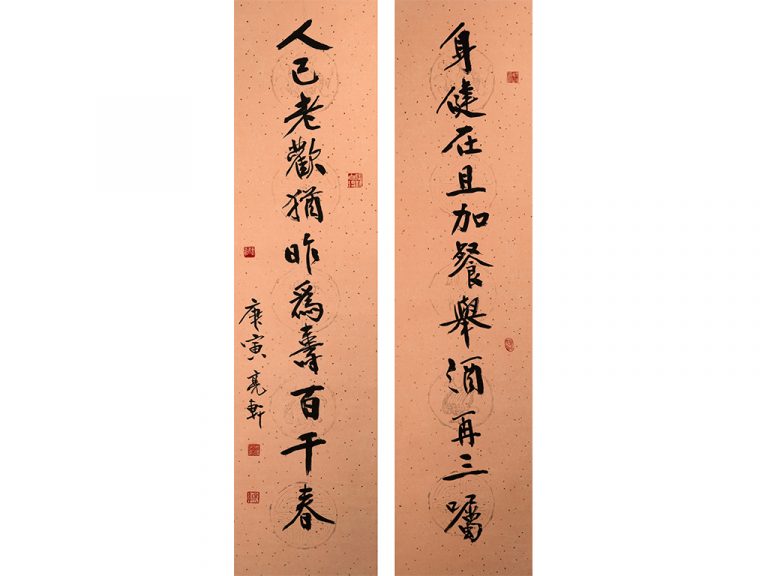 身健在且加餐舉酒再三囑
人已老歡猶昨爲壽百千春
庚寅亮軒